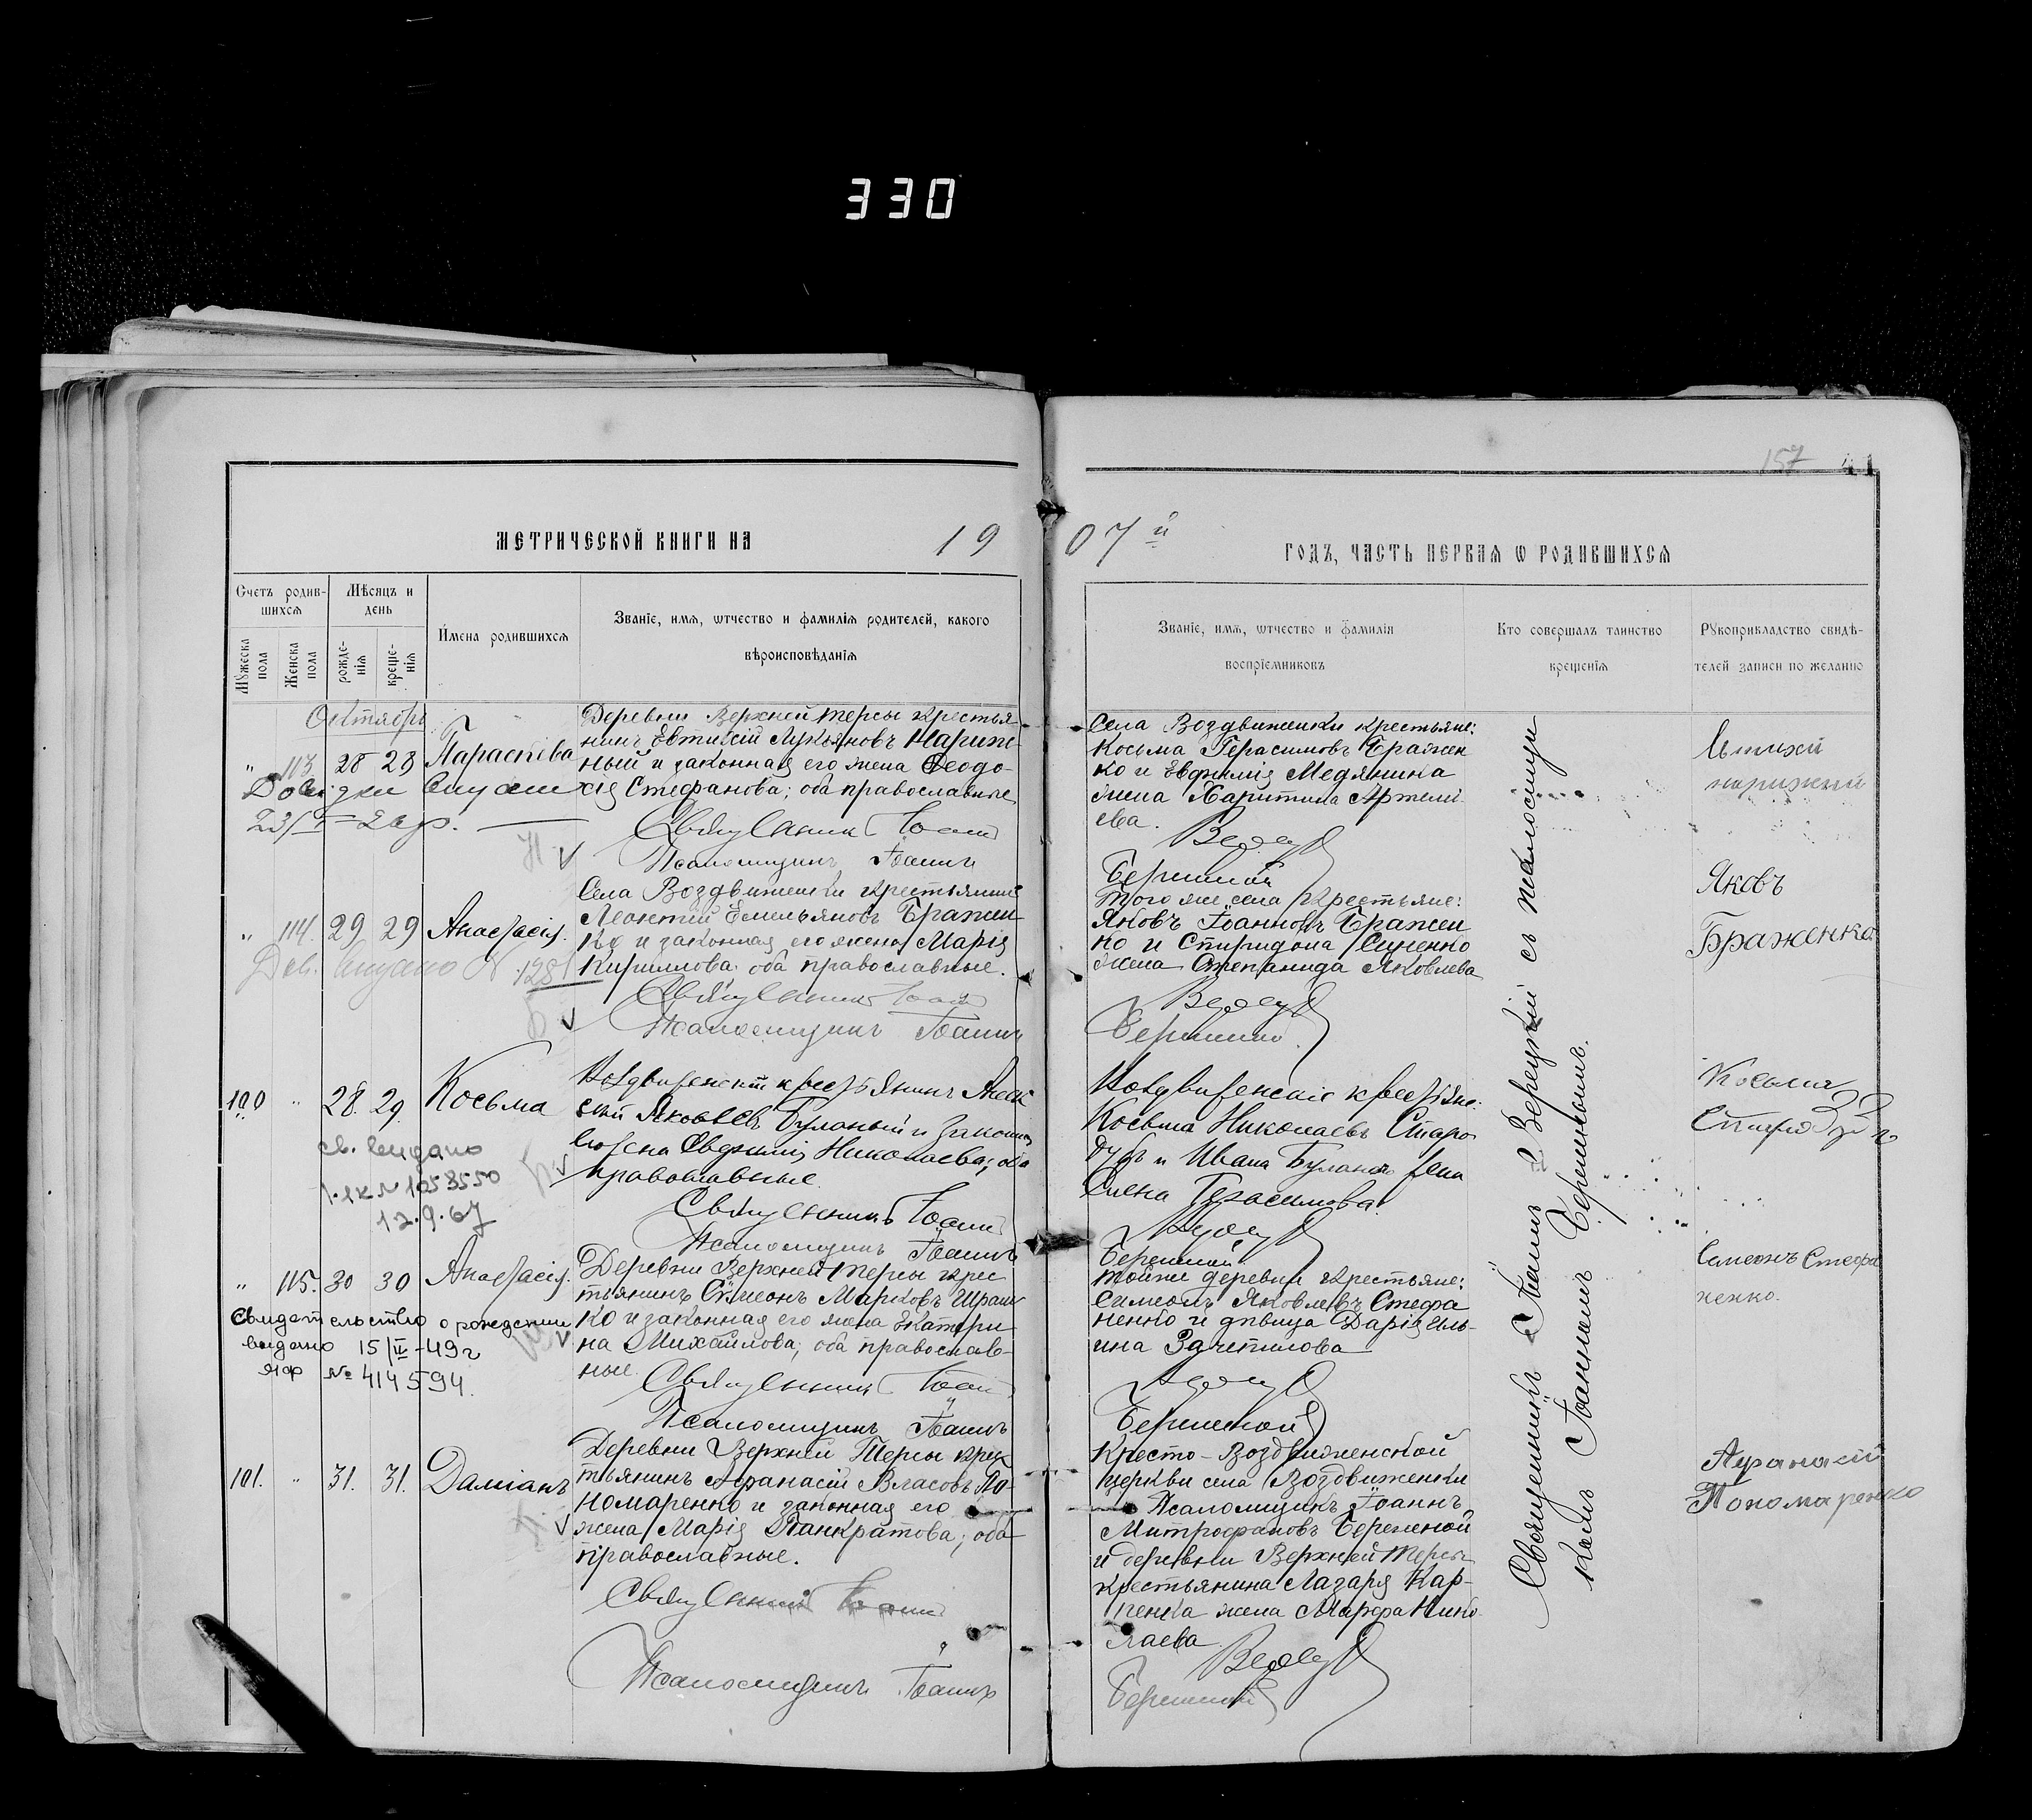 330
157 41
МЕТРИЧЕСКОЙ КНИГИ НА 19
07й ГОДЪ, ЧАСТЬ ПЕРВАЯ Ѡ РОДИВШИХСЯ
Счетъ родив-
шихся
Мужеска пола
Женска пола
Мѣсяцъ и
день
рожде-
нія
креще-
нія
Имена родившихся
Званіе, имя, ѡтчество и фамилія родителей, какого
вѣроисповѣданія
Званіе, имя, ѡтчество и фамилія
воспріемниковъ
Кто совершалъ таинство
крещенія
Рукоприкладство свидѣ-
телей записи по желанію
Октябрь
" 113 28 28 Параскева
Деревни Верхней Терсы крестья-
нинъ Евтихій Лукьяновъ Нариж-
ный и законная его жена Феодо-
сія Стефанова; оба православные
Священникъ Іоаннъ
Псаломщикъ Іоаннъ
Села Воздвиженки крестьяне:
Косьма Герасимовъ Бражен
ко и Евфимія Медяника
жена Харитина Артемі-
ева.
Бережной
нарижний
" 114. 29 29 Анастасія.
№ 1281
Села Воздвиженки крестьянинъ
Леонтій Емельяновъ Бражен
ко и законная его жена Марія
Кириллова оба православные.
Священникъ Іоаннъ
Псаломщикъ Іоаннъ
Того же села крестьяне:
Яковъ Іоанновъ Бражен
ко и Спиридона Синенко
жена Степанида Яковлева
Бережной.
Яковъ
Браженко
100 " 28. 29. Косьма
св. видано
№ 1058550
12.9.67
Воздвиженскій крестьянинъ Алек
сѣй Яковлевъ Буланый и законн
его жена Евфимія Николаева; оба
православные.
Священникъ Іоаннъ
Псаломщикъ Іоаннъ
Воздвиженскіе крестьяне:
Косьма Николаевъ Старо
дубъ и Ивана Буланаго жена
Елена Герасимова.
Бережной
Косьма
" 115. 30 30 Анастасія.
Свидетельство о рождении
видано 15/II-49г
ЯФ № 414594.
Деревни Верхней Терсы крес
тьянинъ Симеонъ Марковъ Шрам
ко и законная его жена Екатери-
на Михайлова; оба православ-
ные.
Священникъ Іоаннъ
Псаломщикъ Іоаннъ
Той же деревни крестьяне:
Симеонъ Яковлевъ Стефа
ненко и дѣвица Дарія Иль-
ина Зачепилова
Бережной
Симеонъ Стефа
ненко.
101. " 31. 31. Даміанъ
Деревни Верхней Терсы крес
тьянинъ Афанасій Власовъ По-
номаренко и законная его
жена Марія Панкратова; оба
православные.
Священникъ Іоаннъ
Псаломщикъ Іоаннъ
Кресто-Воздвиженской
церкви села Воздвиженки
Псаломщикъ Іоаннъ
Митрофановъ Бережной
и деревни Верхней Терсы
крестьянина Лазаря Кар-
пенка жена Марфа Нико-
лаева.
Бережной
Афанасій
Пономаренко
Священникъ Іоаннъ Верецкій съ псаломщи
комъ Іоанномъ Бережнымъ.